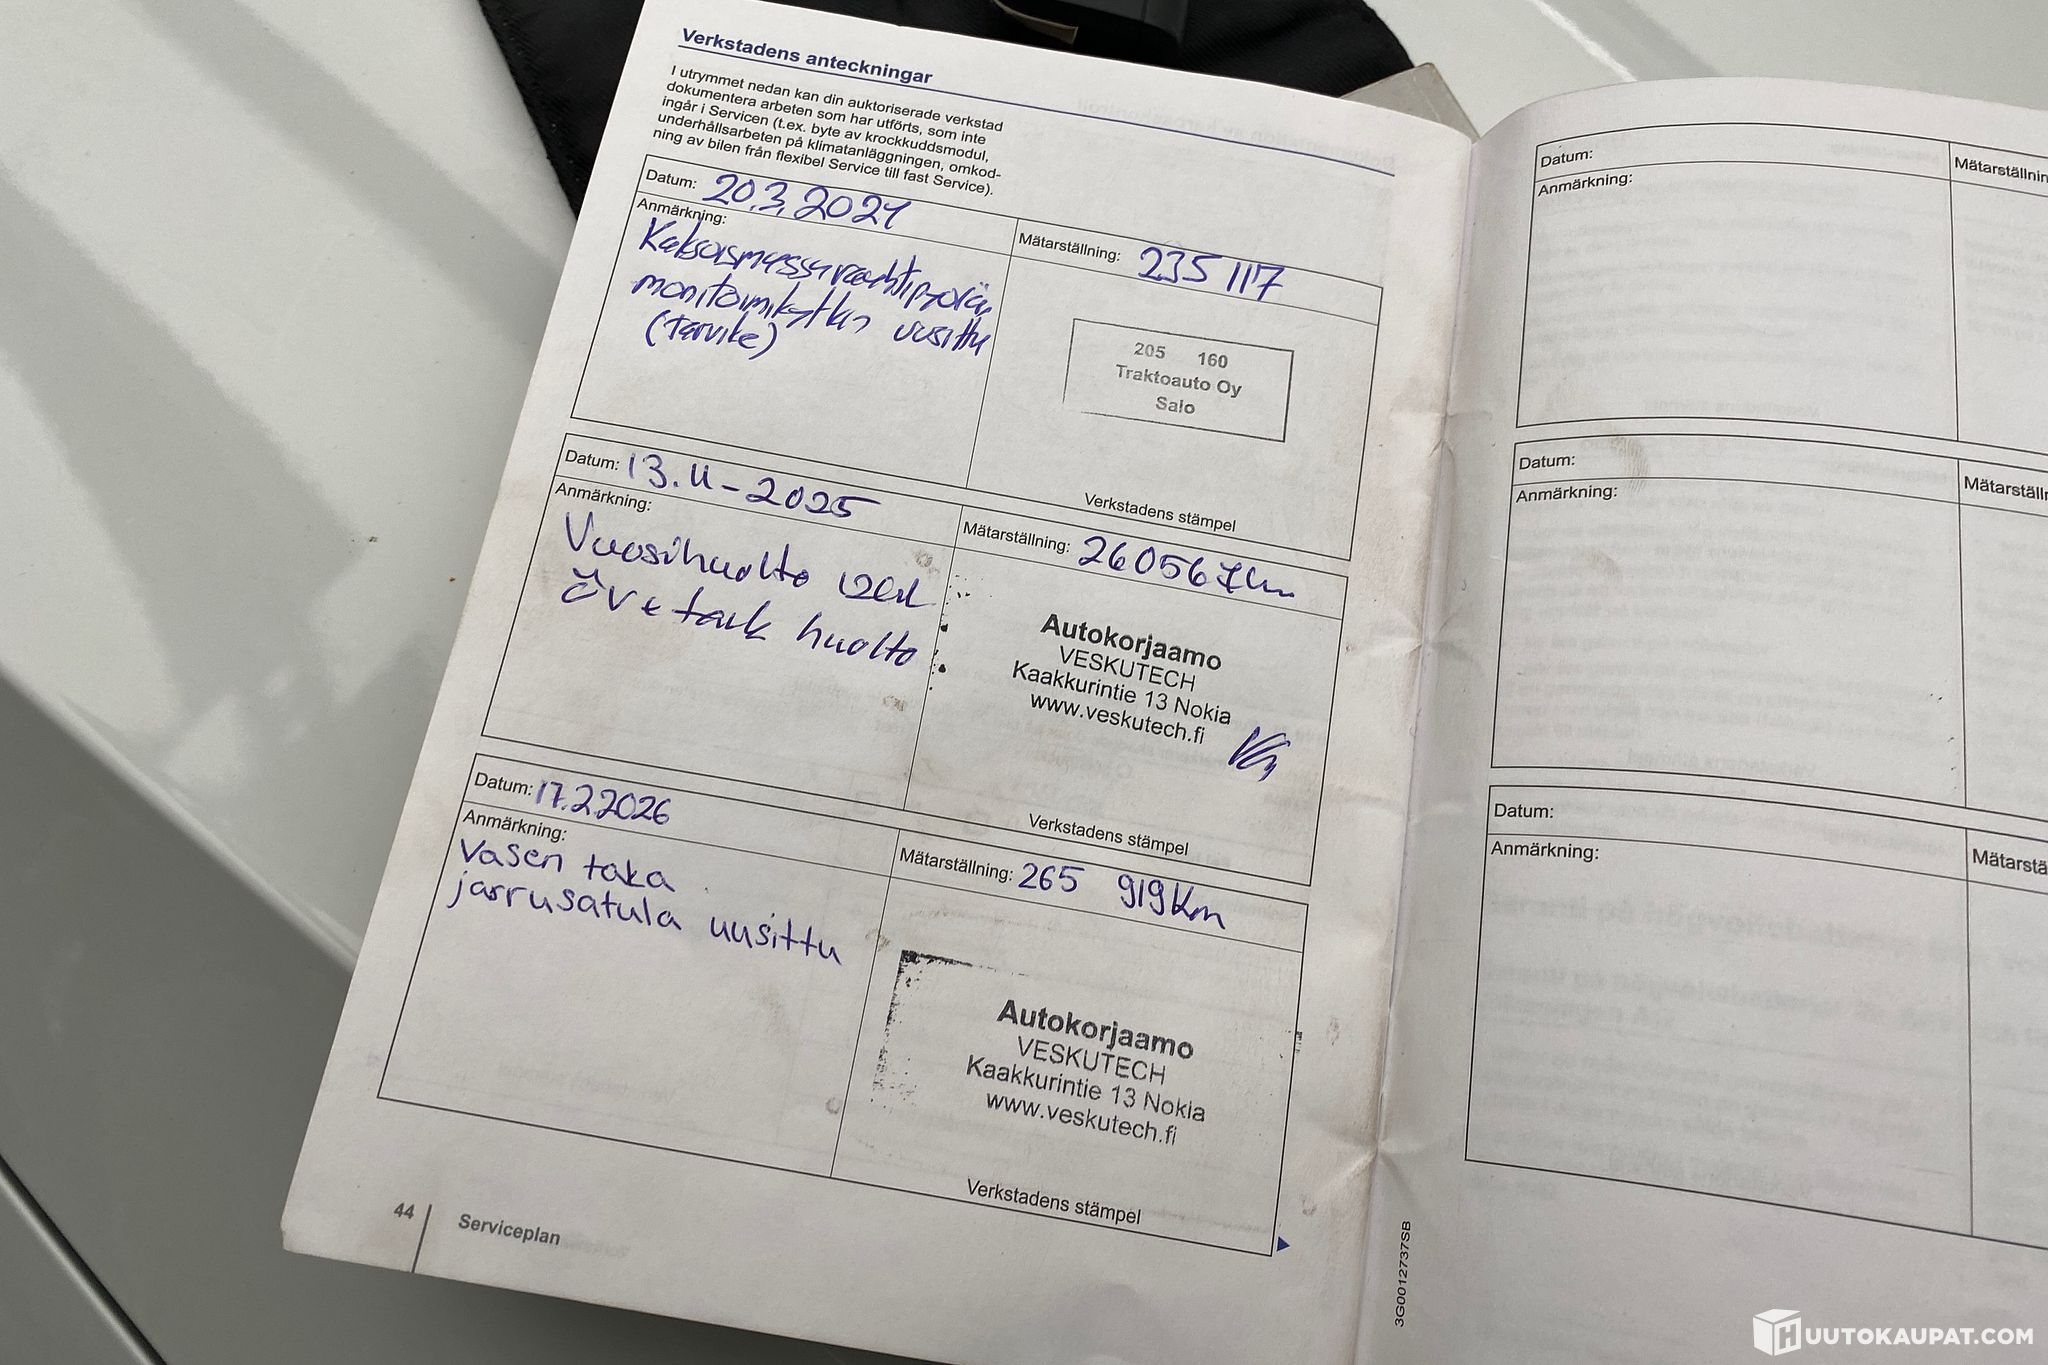 Verkstadens anteckningar
I utrymmet nedan kan din auktoriserade verkstad
dokumentera arbeten som har utförts, som inte
ingår i Servicen (t.ex. byte av krockkuddsmodul,
underhållsarbeten på klimatanläggningen, omkod-
ning av bilen från flexibel Service till fast Service).
Datum: 20.3.2024
Mätarställning: 235 117
Anmärkning:
Kaksoismassavauhtipyörän
monitoimikytkin uusittu
(tarvike)
205 160
Traktoauto Oy
Salo
Verkstadens stämpel
Datum: 13.11-2025
Mätarställning: 260567km
Anmärkning:
Vuosihuolto
huolto
Autokorjaamo
VESKUTECH
Kaakkurintie 13 Nokia
www.veskutech.fi
Verkstadens stämpel
Datum: 17.2.2026
Mätarställning: 265 919km
Anmärkning:
Vasen taka
jarrusatula uusittu
Autokorjaamo
VESKUTECH
Kaakkurintie 13 Nokia
www.veskutech.fi
Verkstadens stämpel
44
Serviceplan
Datum:
Anmärkning:
Datum:
Anmärkning:
Datum:
Anmärkning:
3G0012737SB
HUUTOKAUPAT.COM